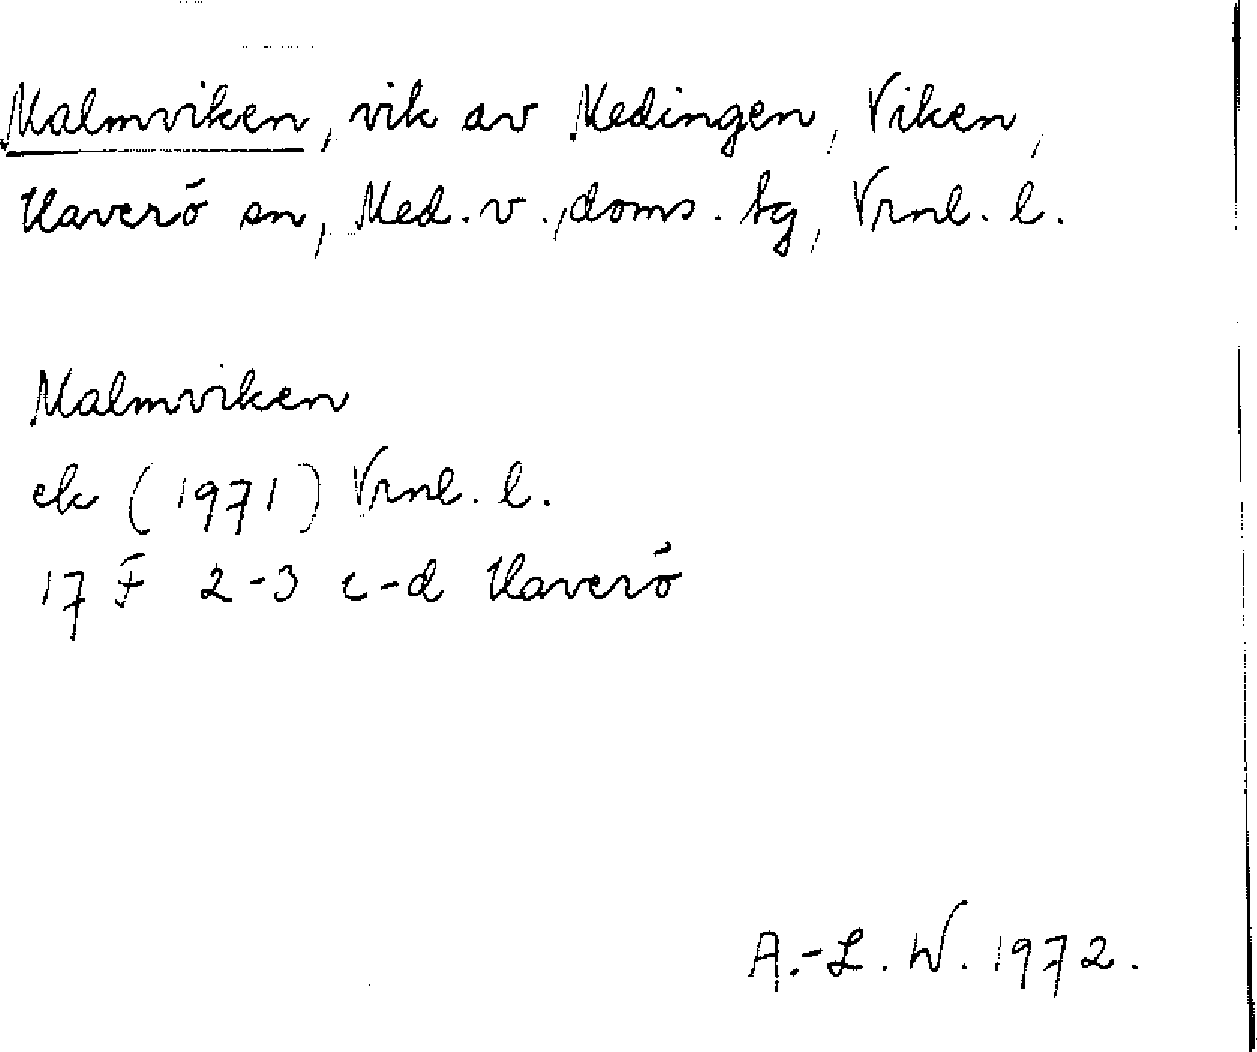 Malmviken, vik av Medingen, Viken,
Haverö sn, Med. v., doms. tg, Vrnl. l.
Malmviken
ek (1971) Vrnl. l.
17 F 2-3 c-d Haverö
A.-L. W. 1972.